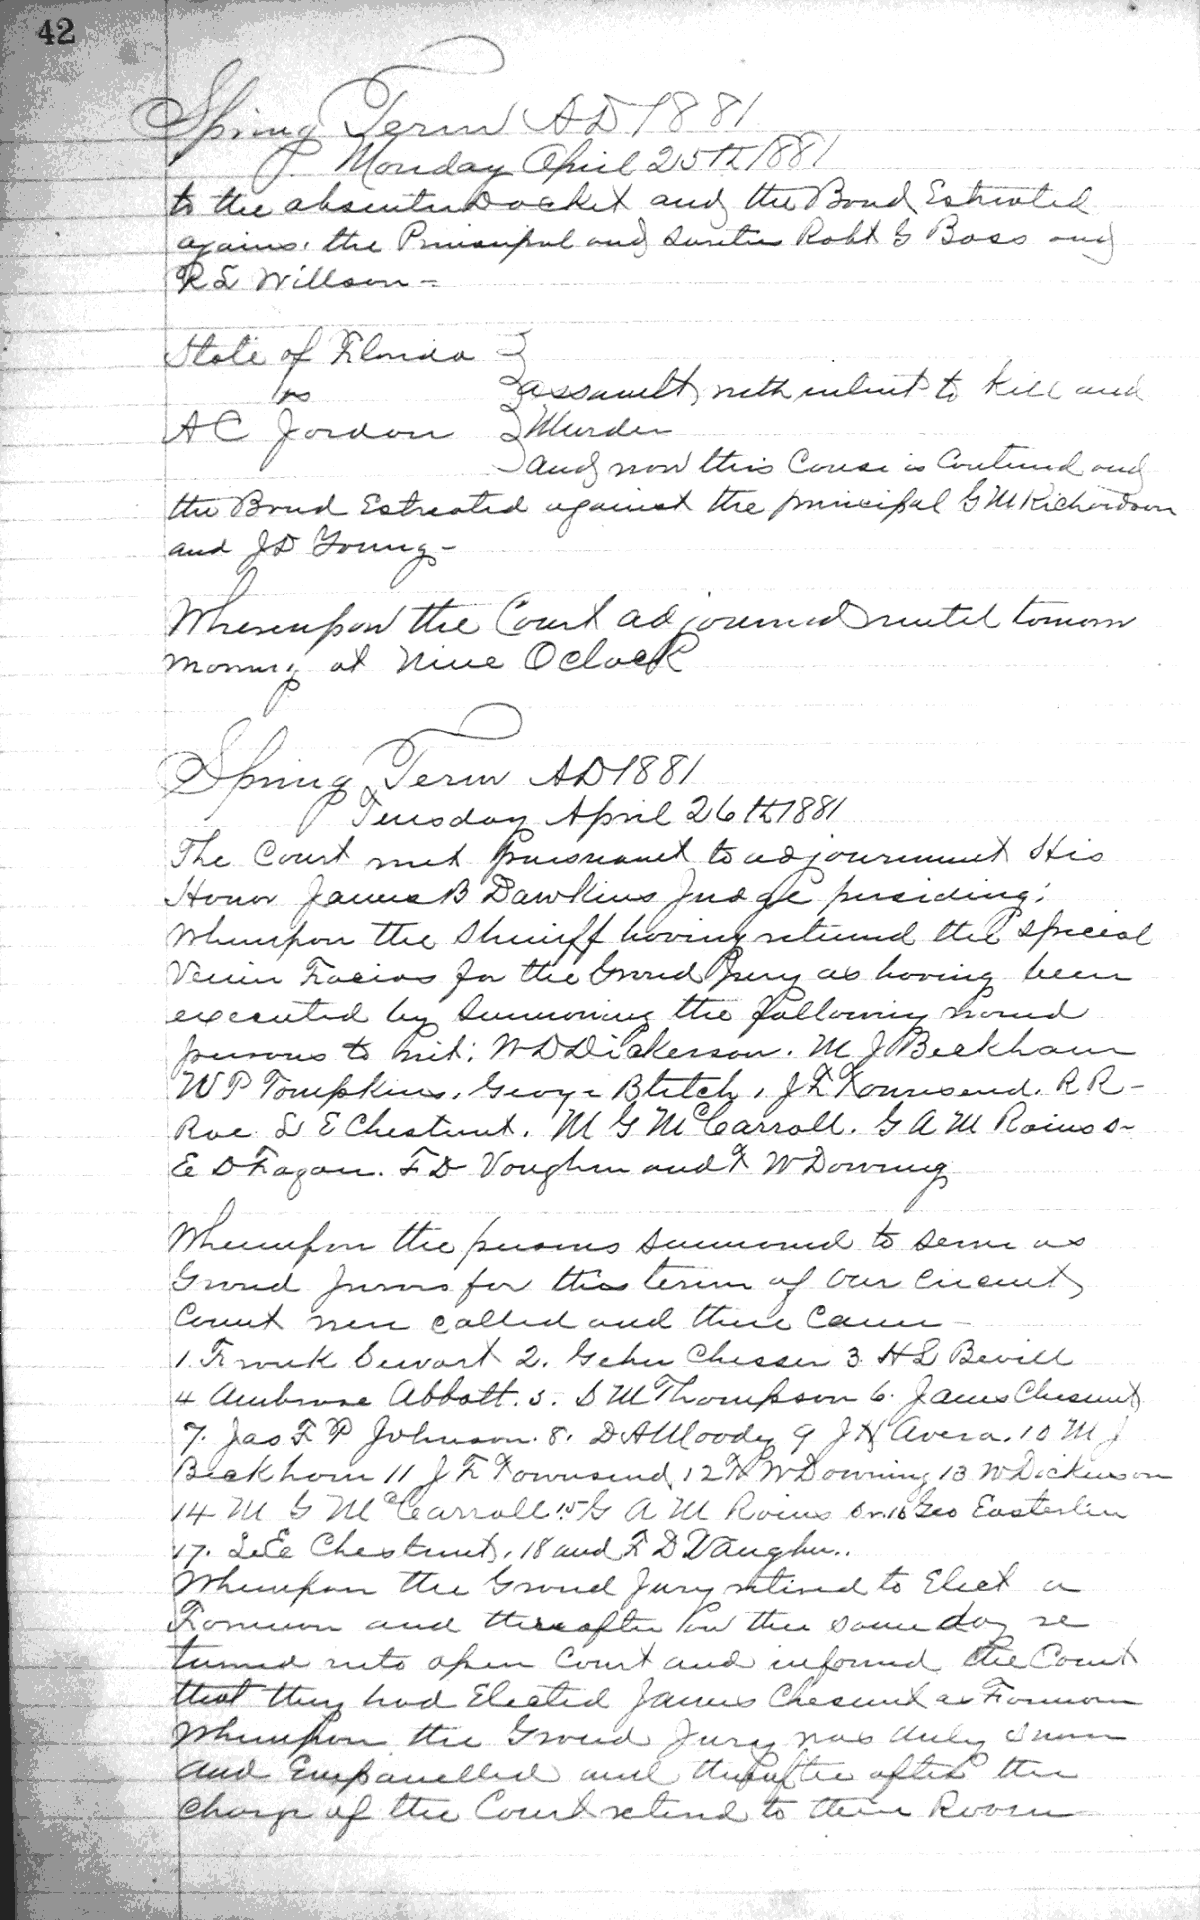 42
Spring Term AD 1881
Monday April 25th 1881
to the absentee Docket and the Bond Estreated
against the Principal and sureties Robt G Bass and
R L Willson =
State of Florida
vs
assault with intent to Kill and
A C Jordon Murder
and now this Cause is Continued and
the Bond Estreated against the principal G M Richardson
and J D Young -
Whereupon the Court adjourned until tomorrow
morning at Nine Oclock
Spring Term AD 1881
Tuesday April 26th 1881
The Court met pursuant to adjournment His
Honor James B Dawkins Judge presiding;
Whereupon the Sheriff having returned the special
Venire Facias for the Grand Jury as having been
executed by summoning the following named
persons to wit; W D Dickerson. M J Beckham
W P Tompkins. George Blitch, J F Townsend. R R-
Roe L E Chestnut. M G McCarroll. G A M Rains Sr
E D Fagan. F D Vaughn and F W Downing
Whereupon the persons summoned to serve as
Grand Jurors for this term of our Circuit
Court were called and there Came -
1. Frank 2. Chesser 3. H L Bevill
4 Ambrose Abbott. 5. S M Thompson 6. James Chesnut
7. Jas F P Johnson. 8. D A Moody 9 J H Avera. 10 M J
Beckham 11 J F Townsend, 12 F W Downing 13 W Dickerson
14 M G McCarroll 15 G A M Rains Sr. 16 Geo Easterlin
17. L E Chestnut, 18 and F D Vaughn..
Whereupon the Grand Jury retired to Elect a
Foreman and thereafter on the same day re
turned into open Court and informed the Court
that they had Elected James Chesnut as Foreman
Whereupon the Grand Jury was duly sworn
and Empanelled and thereafter after the
charge of the Court retired to their Room